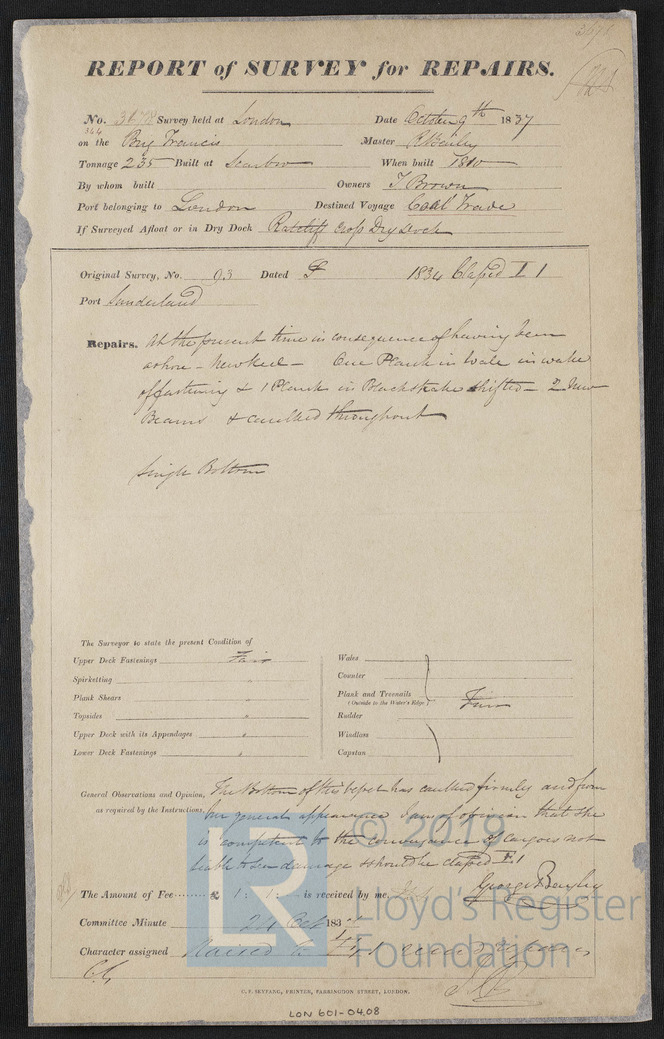 REPORT of SURVEY for REPAIRS.
No. 3678 Survey held at London Date October 9th 1837
344
on the Brig Francis Master
Tonnage 235 Built at When built 1810
By whom built Owners T Brown
Port belonging to London Destined Voyage Coal Trade
If Surveyed Afloat or in Dry Dock Ratcliff Cross Dry Dock
Original Survey, No. 93 Dated 1834 Classed I 1
Port Sunderland
Repairs. At the present time in consequence of having been
ashore - New keel - One Plank in Wale in wake
of fastening & 1 Plank in Blackstrake shifted - 2 New
Beams & caulked throughout
Single Bottom
The Surveyor to state the present Condition of
Upper Deck Fastenings Fair
Spirketting "
Plank Shears "
Topsides "
Upper Deck with its Appendages "
Lower Deck Fastenings "
Wales
Counter
Plank and Treenails
(Outside to the Water's Edge) Fair
Rudder
Windlass
Capstan
General Observations and Opinion, The Bottom of this vessel has caulked firmly and from
as required by the Instructions, her general appearance I am of opinion that she
is competent to the conveyance of cargoes not
liable to sea damage & should be classed I 1
The Amount of Fee £ 1 : 1 : is received by me, George Bayley
Committee Minute 24 Oct 183
Character assigned
C. F. SEYFANG, PRINTER, FARRINGDON STREET, LONDON.
LON 601-0408
LR © 2019
Lloyd's Register
Foundation